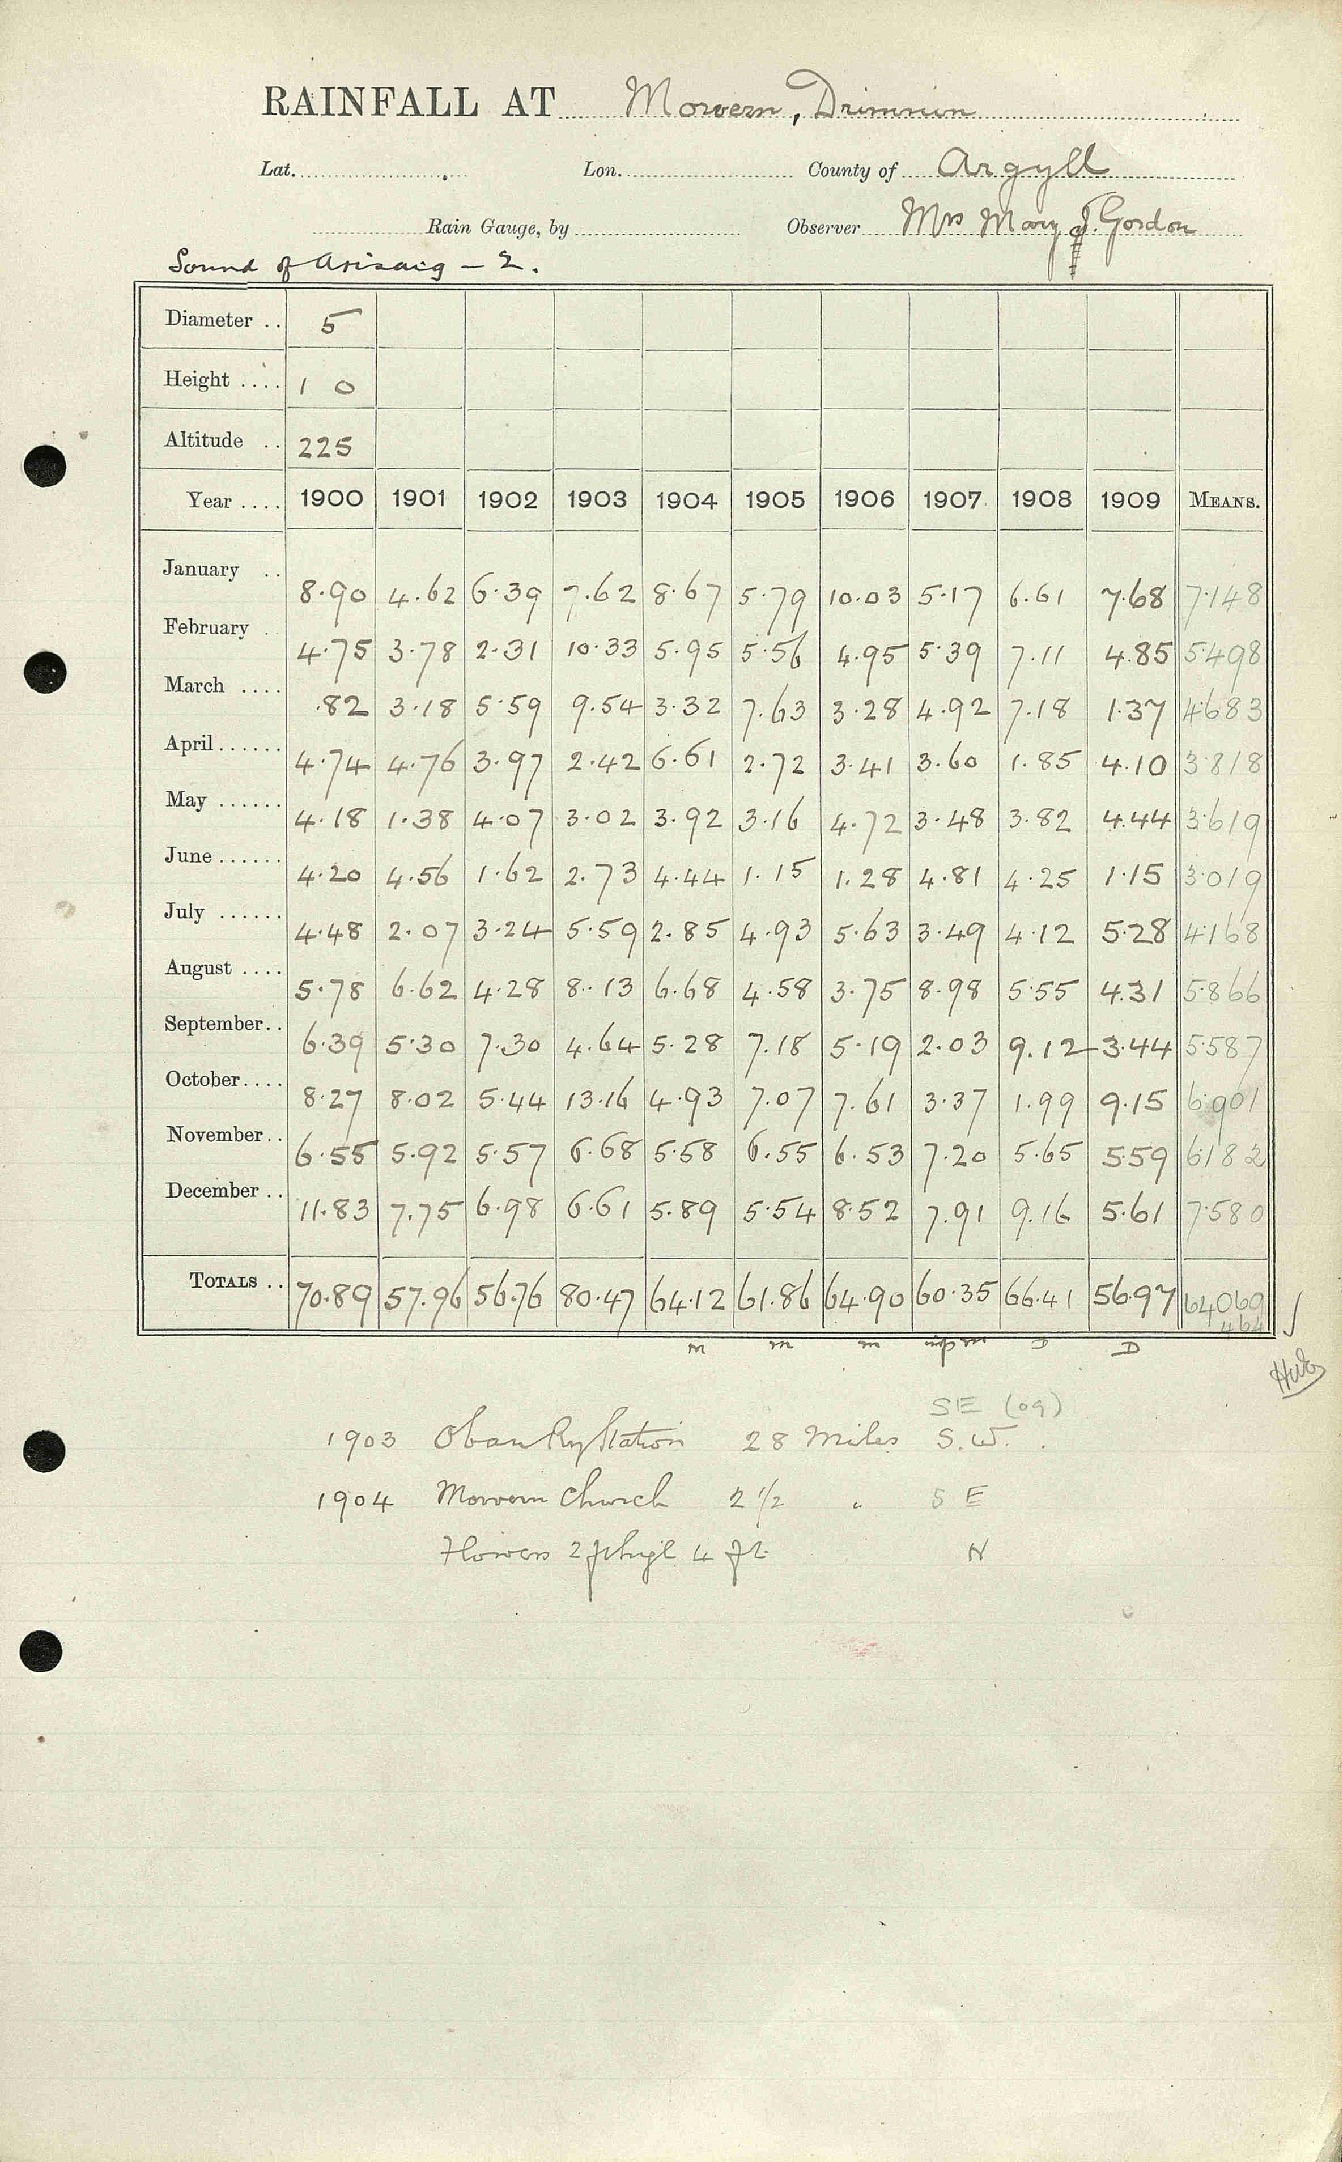 RAINFALL AT Morvern, Drimnin
Lat. Lon. County of Argyll
Rain Gauge, by Observer Mrs Mary J. Gordon
Sound of Arisaig - 2.
Diameter .. 5
Height .... 1 0
Altitude .. 225
Year .... 1900 1901 1902 1903 1904 1905 1906 1907 1908 1909 MEANS.
January .. 8.90 4.62 6.39 7.62 8.67 5.79 10.03 5.17 6.61 7.68 7.148
February . 4.75 3.78 2.31 10.33 5.95 5.56 4.95 5.39 7.11 4.85 5.498
March .... .82 3.18 5.59 9.54 3.32 7.63 3.28 4.92 7.18 1.37 4.683
April ...... 4.74 4.76 3.97 2.42 6.61 2.72 3.41 3.60 1.85 4.10 3.818
May ...... 4.18 1.38 4.07 3.02 3.92 3.16 4.72 3.48 3.82 4.44 3.619
June ...... 4.20 4.56 1.62 2.73 4.44 1.15 1.28 4.81 4.25 1.15 3.019
July ...... 4.48 2.07 3.24 5.59 2.85 4.93 5.63 3.49 4.12 5.28 4.168
August .... 5.78 6.62 4.28 8.13 6.68 4.58 3.75 8.98 5.55 4.31 5.866
September.. 6.39 5.30 7.30 4.64 5.28 7.18 5.19 2.03 9.12 3.44 5.587
October.... 8.27 8.02 5.44 13.16 4.93 7.07 7.61 3.37 1.99 9.15 6.901
November.. 6.55 5.92 5.57 6.68 5.58 6.55 6.53 7.20 5.65 5.59 6.182
December .. 11.83 7.75 6.98 6.61 5.89 5.54 8.52 7.91 9.16 5.61 7.580
TOTALS .. 70.89 57.96 56.76 80.47 64.12 61.86 64.90 60.35 66.41 56.97 64069
464
m m m D D
SE (09)
1903 Oban Ry Station 28 Miles S.W.
1904 Morvern Church 2 1/2 " S E
Flowers 2 ft high 4 ft N